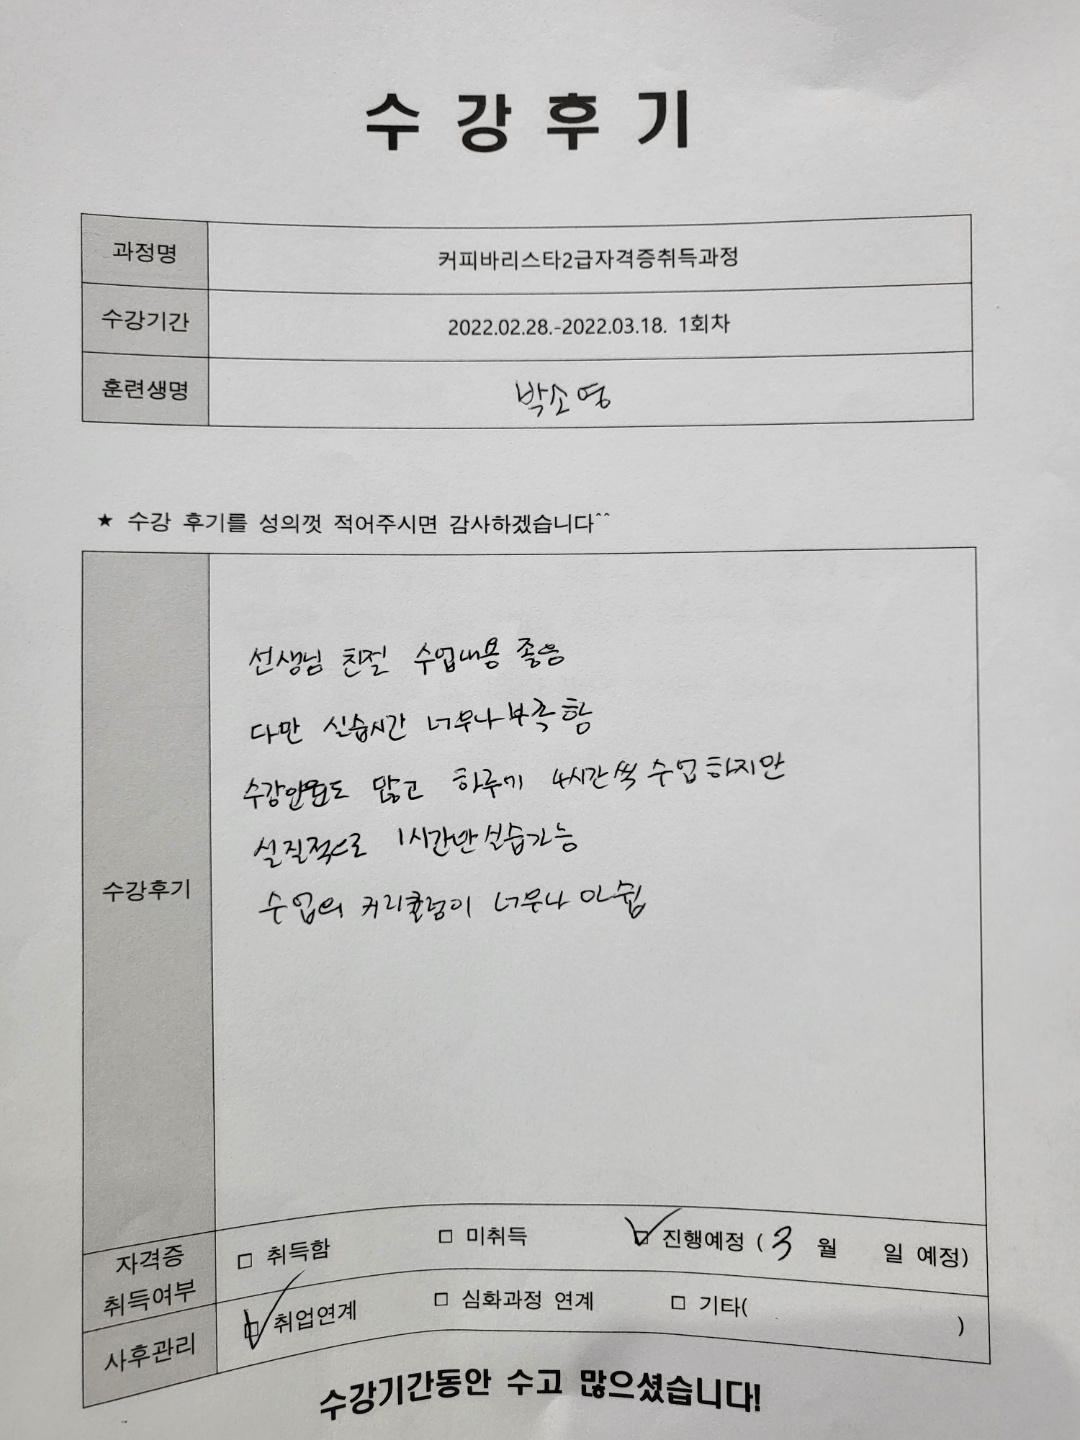 수 강 후 기
과정명 커피바리스타2급자격증취득과정
수강기간 2022.02.28.-2022.03.18. 1회차
훈련생명 박소영
★ 수강 후기를 성의껏 적어주시면 감사하겠습니다^^
수강후기
선생님 친절 수업내용 좋음
다만 실습시간 너무나 부족함
수강인원도 많고 하루에 4시간씩 수업하지만
실질적으로 1시간만 실습가능
수업의 커리큘럼이 너무나 아쉽
자격증 취득여부 □ 취득함 □ 미취득 ☑ 진행예정 ( 3 월 일 예정)
사후관리 ☑ 취업연계 □ 심화과정 연계 □ 기타( )
수강기간동안 수고 많으셨습니다!